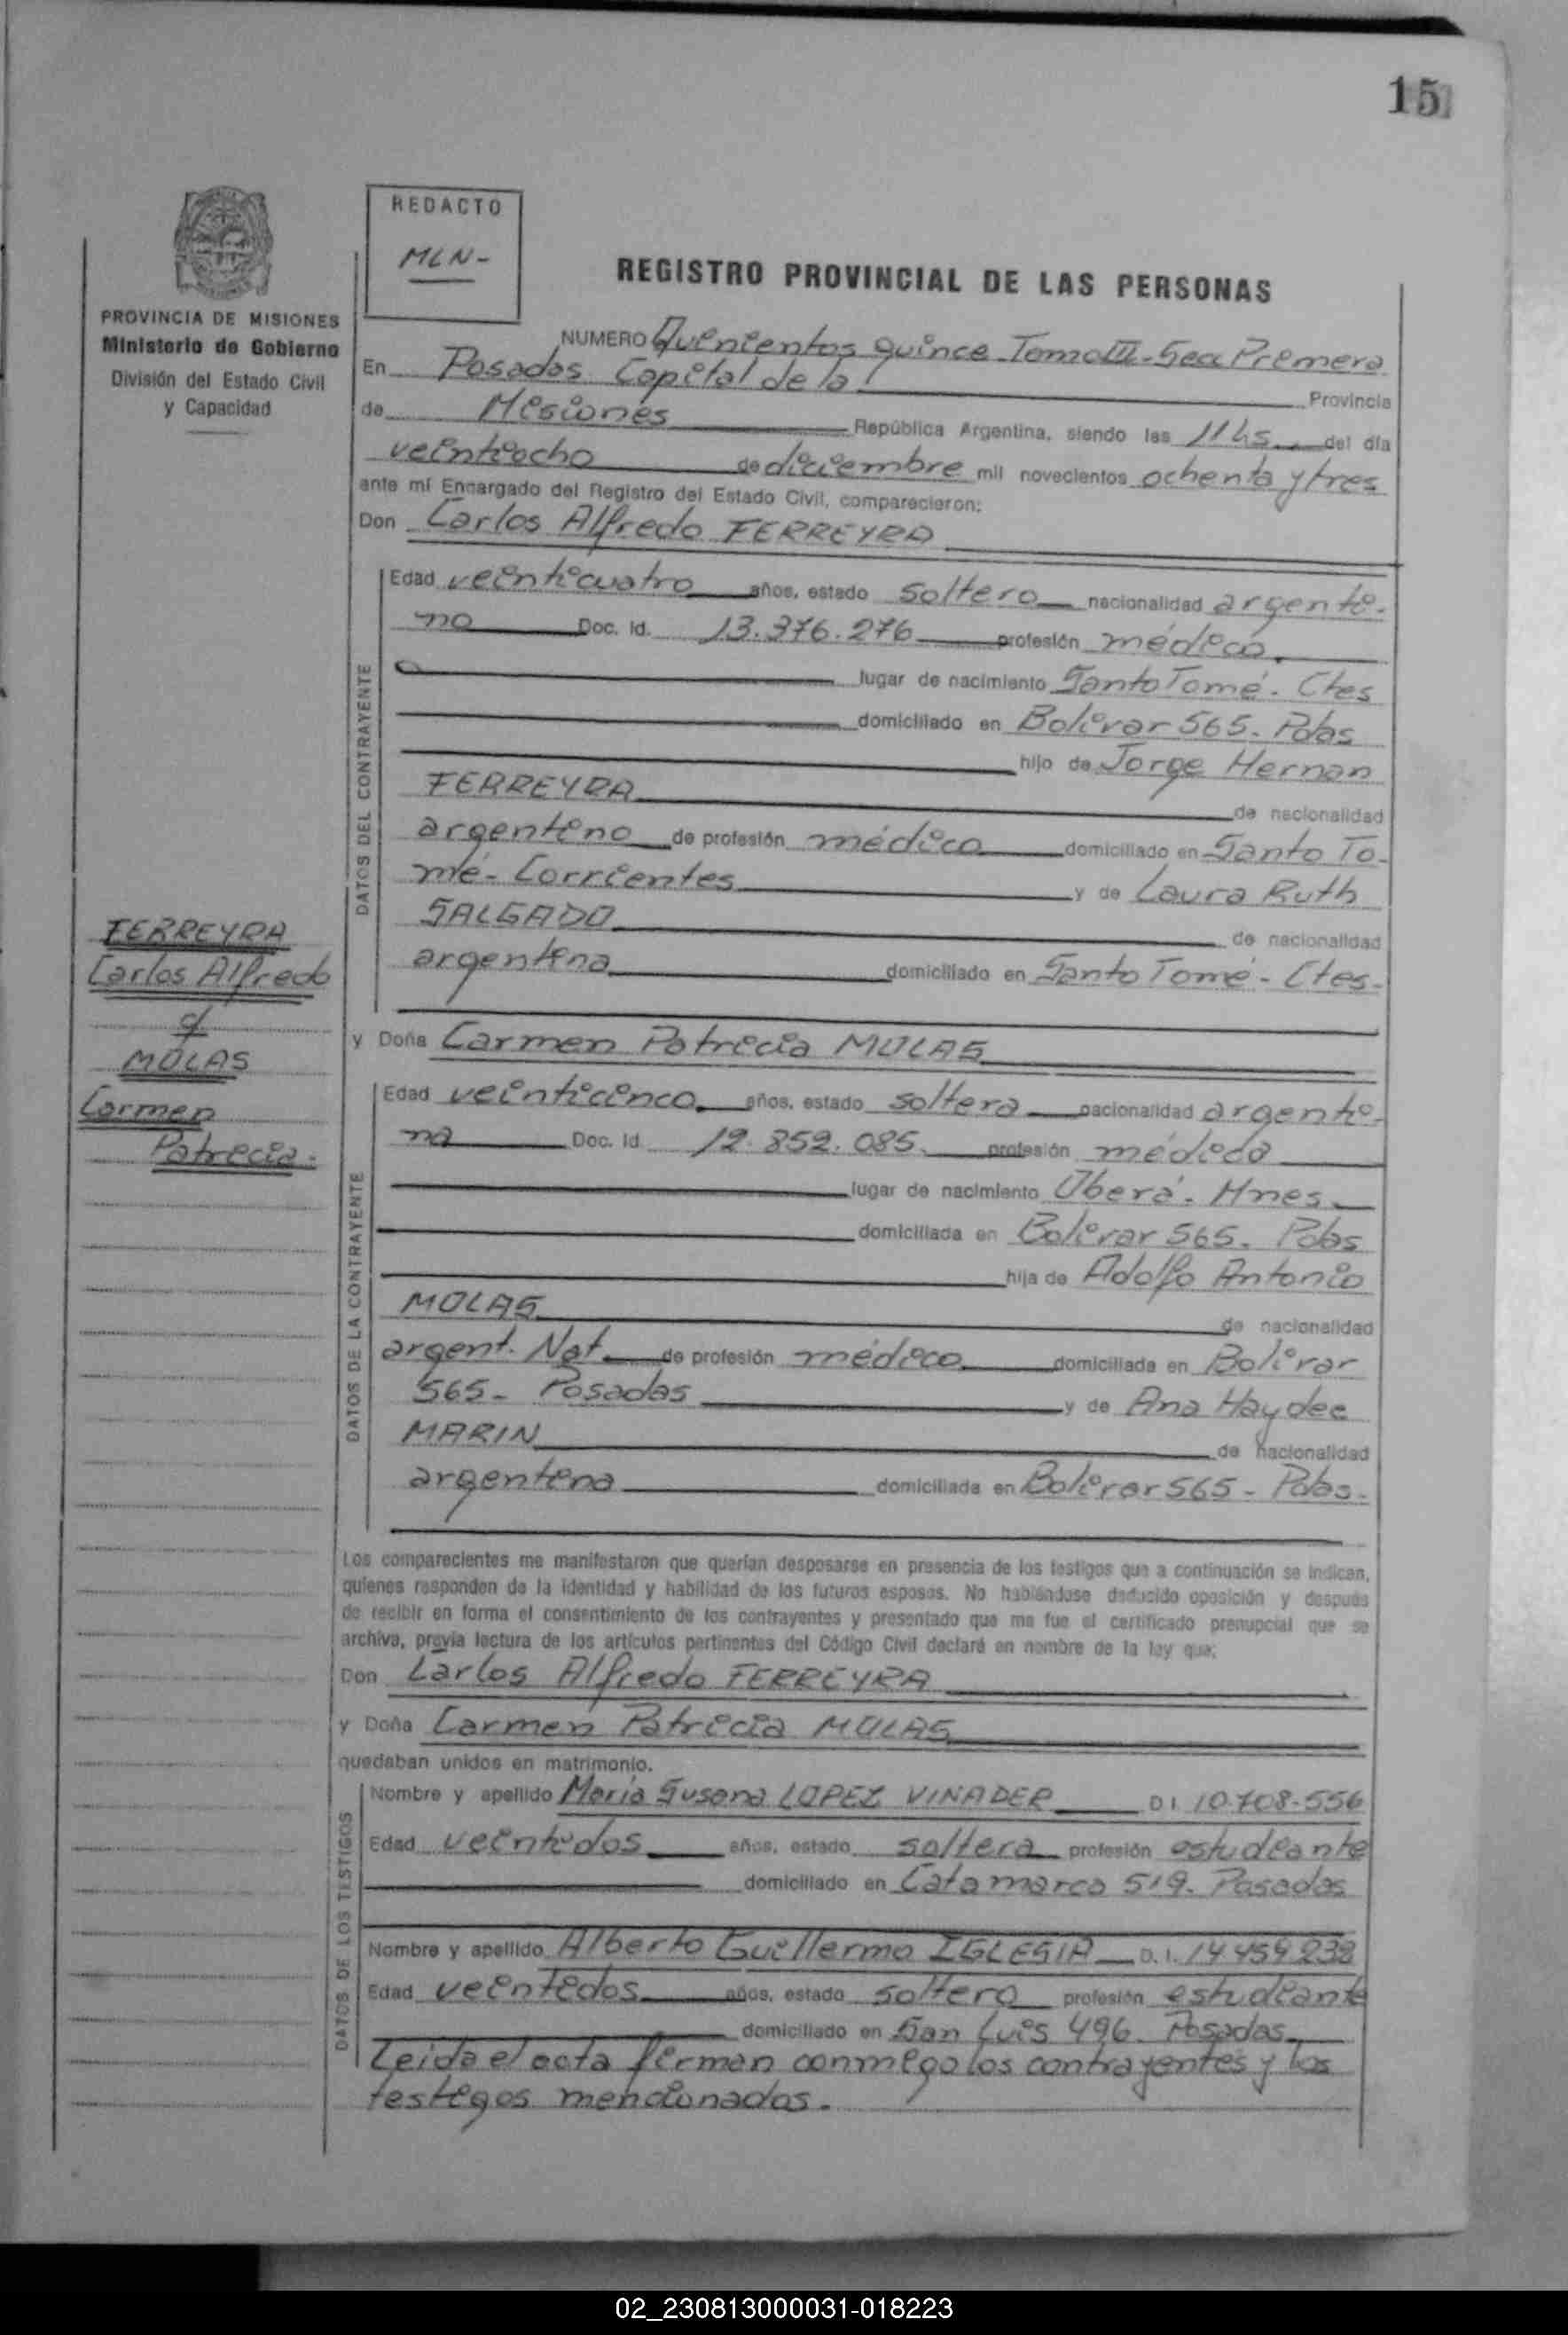 15
REDACTO
MLN-
REGISTRO PROVINCIAL DE LAS PERSONAS
PROVINCIA DE MISIONES
Ministerio de Gobierno
División del Estado Civil
y Capacidad
NUMERO Quinientos quince Tomo III - Secc Primera
En Posadas Capital de la Provincia
de Misiones República Argentina, siendo las 11 hs del día
veintiocho de diciembre mil novecientos ochenta y tres
ante mí Encargado del Registro del Estado Civil, comparecieron:
Don Carlos Alfredo FERREYRA
DATOS DEL CONTRAYENTE
Edad veinticuatro años, estado soltero nacionalidad argenti-
no Doc. Id. 13.376.276 profesión médico.
lugar de nacimiento Santo Tomé. Ctes
domiciliado en Bolívar 565. Pdas
hijo de Jorge Hernan
FERREYRA de nacionalidad
argentino de profesión médico domiciliado en Santo To-
mé - Corrientes y de Laura Ruth
SALGADO de nacionalidad
argentina domiciliado en Santo Tomé - Ctes-
FERREYRA
Carlos Alfredo
c/
MOLAS
Carmen
Patricia.
y Doña Carmen Patricia MOLAS
DATOS DE LA CONTRAYENTE
Edad veinticinco años, estado soltera nacionalidad argenti-
na Doc. Id 12.852.085. profesión médica
lugar de nacimiento Oberá. Mnes
domiciliada en Bolívar 565. Pdas
hija de Adolfo Antonio
MOLAS de nacionalidad
argent. Nat. de profesión médico domiciliada en Bolívar
565- Posadas y de Ana Haydee
MARIN de nacionalidad
argentina domiciliada en Bolívar 565 - Pdas.
Los comparecientes me manifestaron que querían desposarse en presencia de los testigos que a continuación se indican,
quienes responden de la identidad y habilidad de los futuros esposos. No habiéndose deducido oposición y después
de recibir en forma el consentimiento de los contrayentes y presentado que me fue el certificado prenupcial que se
archiva, previa lectura de los artículos pertinentes del Código Civil declaré en nombre de la ley que:
Don Carlos Alfredo FERREYRA
y Doña Carmen Patricia MOLAS
quedaban unidos en matrimonio.
DATOS DE LOS TESTIGOS
Nombre y apellido María Susana LOPEZ VINADER D I 10.708.556
Edad veintidos años, estado soltera profesión estudiante
domiciliado en Catamarca 519. Posadas
Nombre y apellido Alberto Guillermo IGLESIA D. I. 14 459 238
Edad veintidos años, estado soltero profesión estudiante
domiciliado en San Luis 496. Posadas
Leída el acta firman conmigo los contrayentes y los
testigos mencionados.
02_230813000031-018223